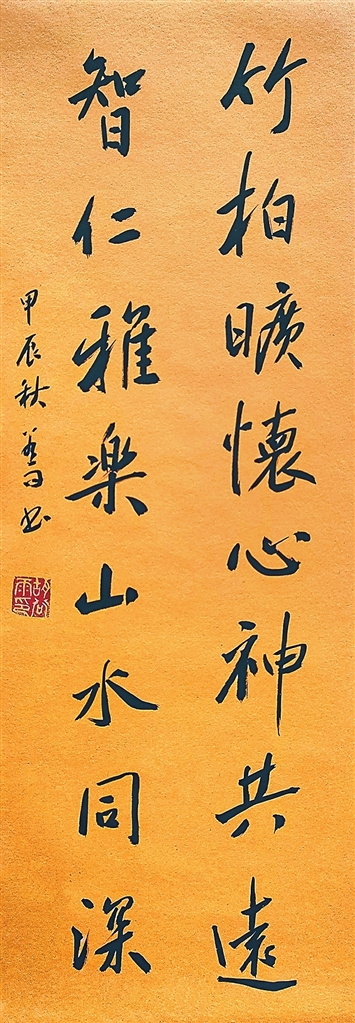 竹柏曠懷心神共遠
智仁雅樂山水同深
甲辰秋 书